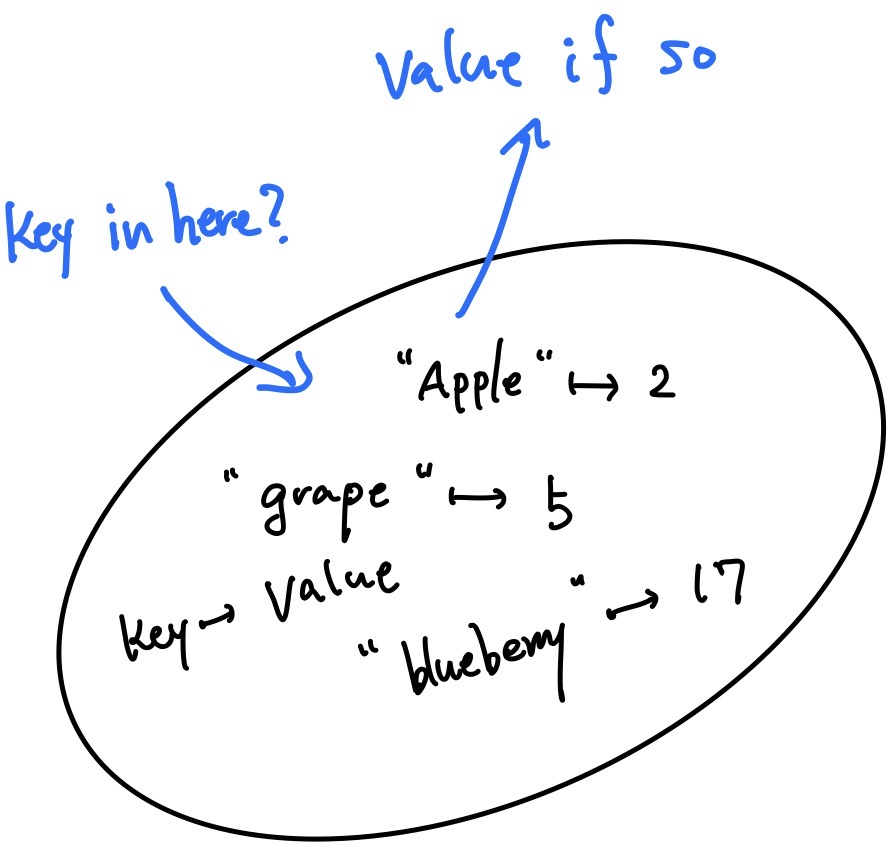 Value if so
Key in here?
"Apple" ↦ 2
"grape" ↦ 5
Key → Value
"blueberry" ↦ 17